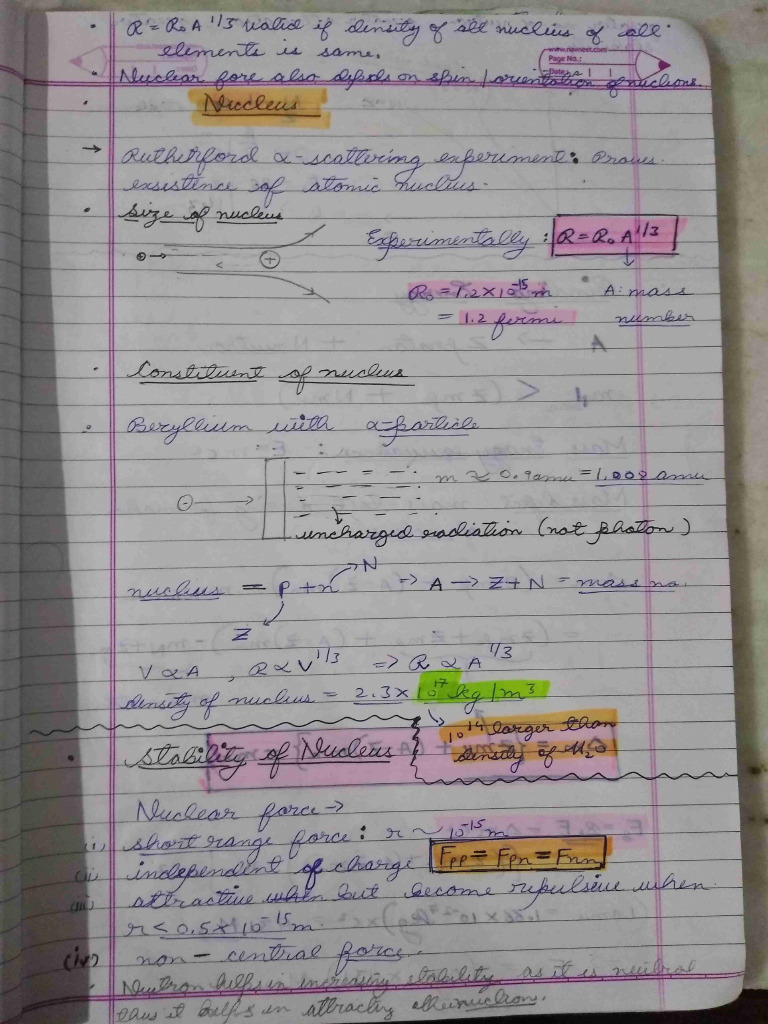 • R = R₀ A^1/3 valid if density of all nucleus of all
elements is same.
www.navneet.com
Page No.:
Date:
• Nuclear fore also depends on spin / orientation of nucleons.
• Nucleus
→ Rutherford α-scattering experiment: Proves
exsistence of atomic nucleus.
• Size of nucleus
Experimentally : R = R₀ A^1/3
R₀ = 1.2 × 10^-15 m
A: mass
= 1.2 fermi
number
• Constituent of nucleus
• Beryllium with α-particle
m ≈ 0.9 amu = 1.008 amu
uncharged radiation (not photon)
N
nucleus = P + n → A → Z + N = mass no.
Z
V ∝ A , R ∝ V^1/3 ⇒ R ∝ A^1/3
density of nucleus = 2.3 × 10^17 kg/m³
10^14 larger than
density of H₂O
• Stability of Nucleus
Nuclear force →
(i) short range force : r ~ 10^-15 m
(ii) independent of charge Fpp = Fpn = Fnn
(iii) attractive when but become repulsive when
r < 0.5 × 10^-15 m.
(iv) non - central force.
• Neutron helps in incresing stability as it is neutral
thus it helps in attracting nuclron.